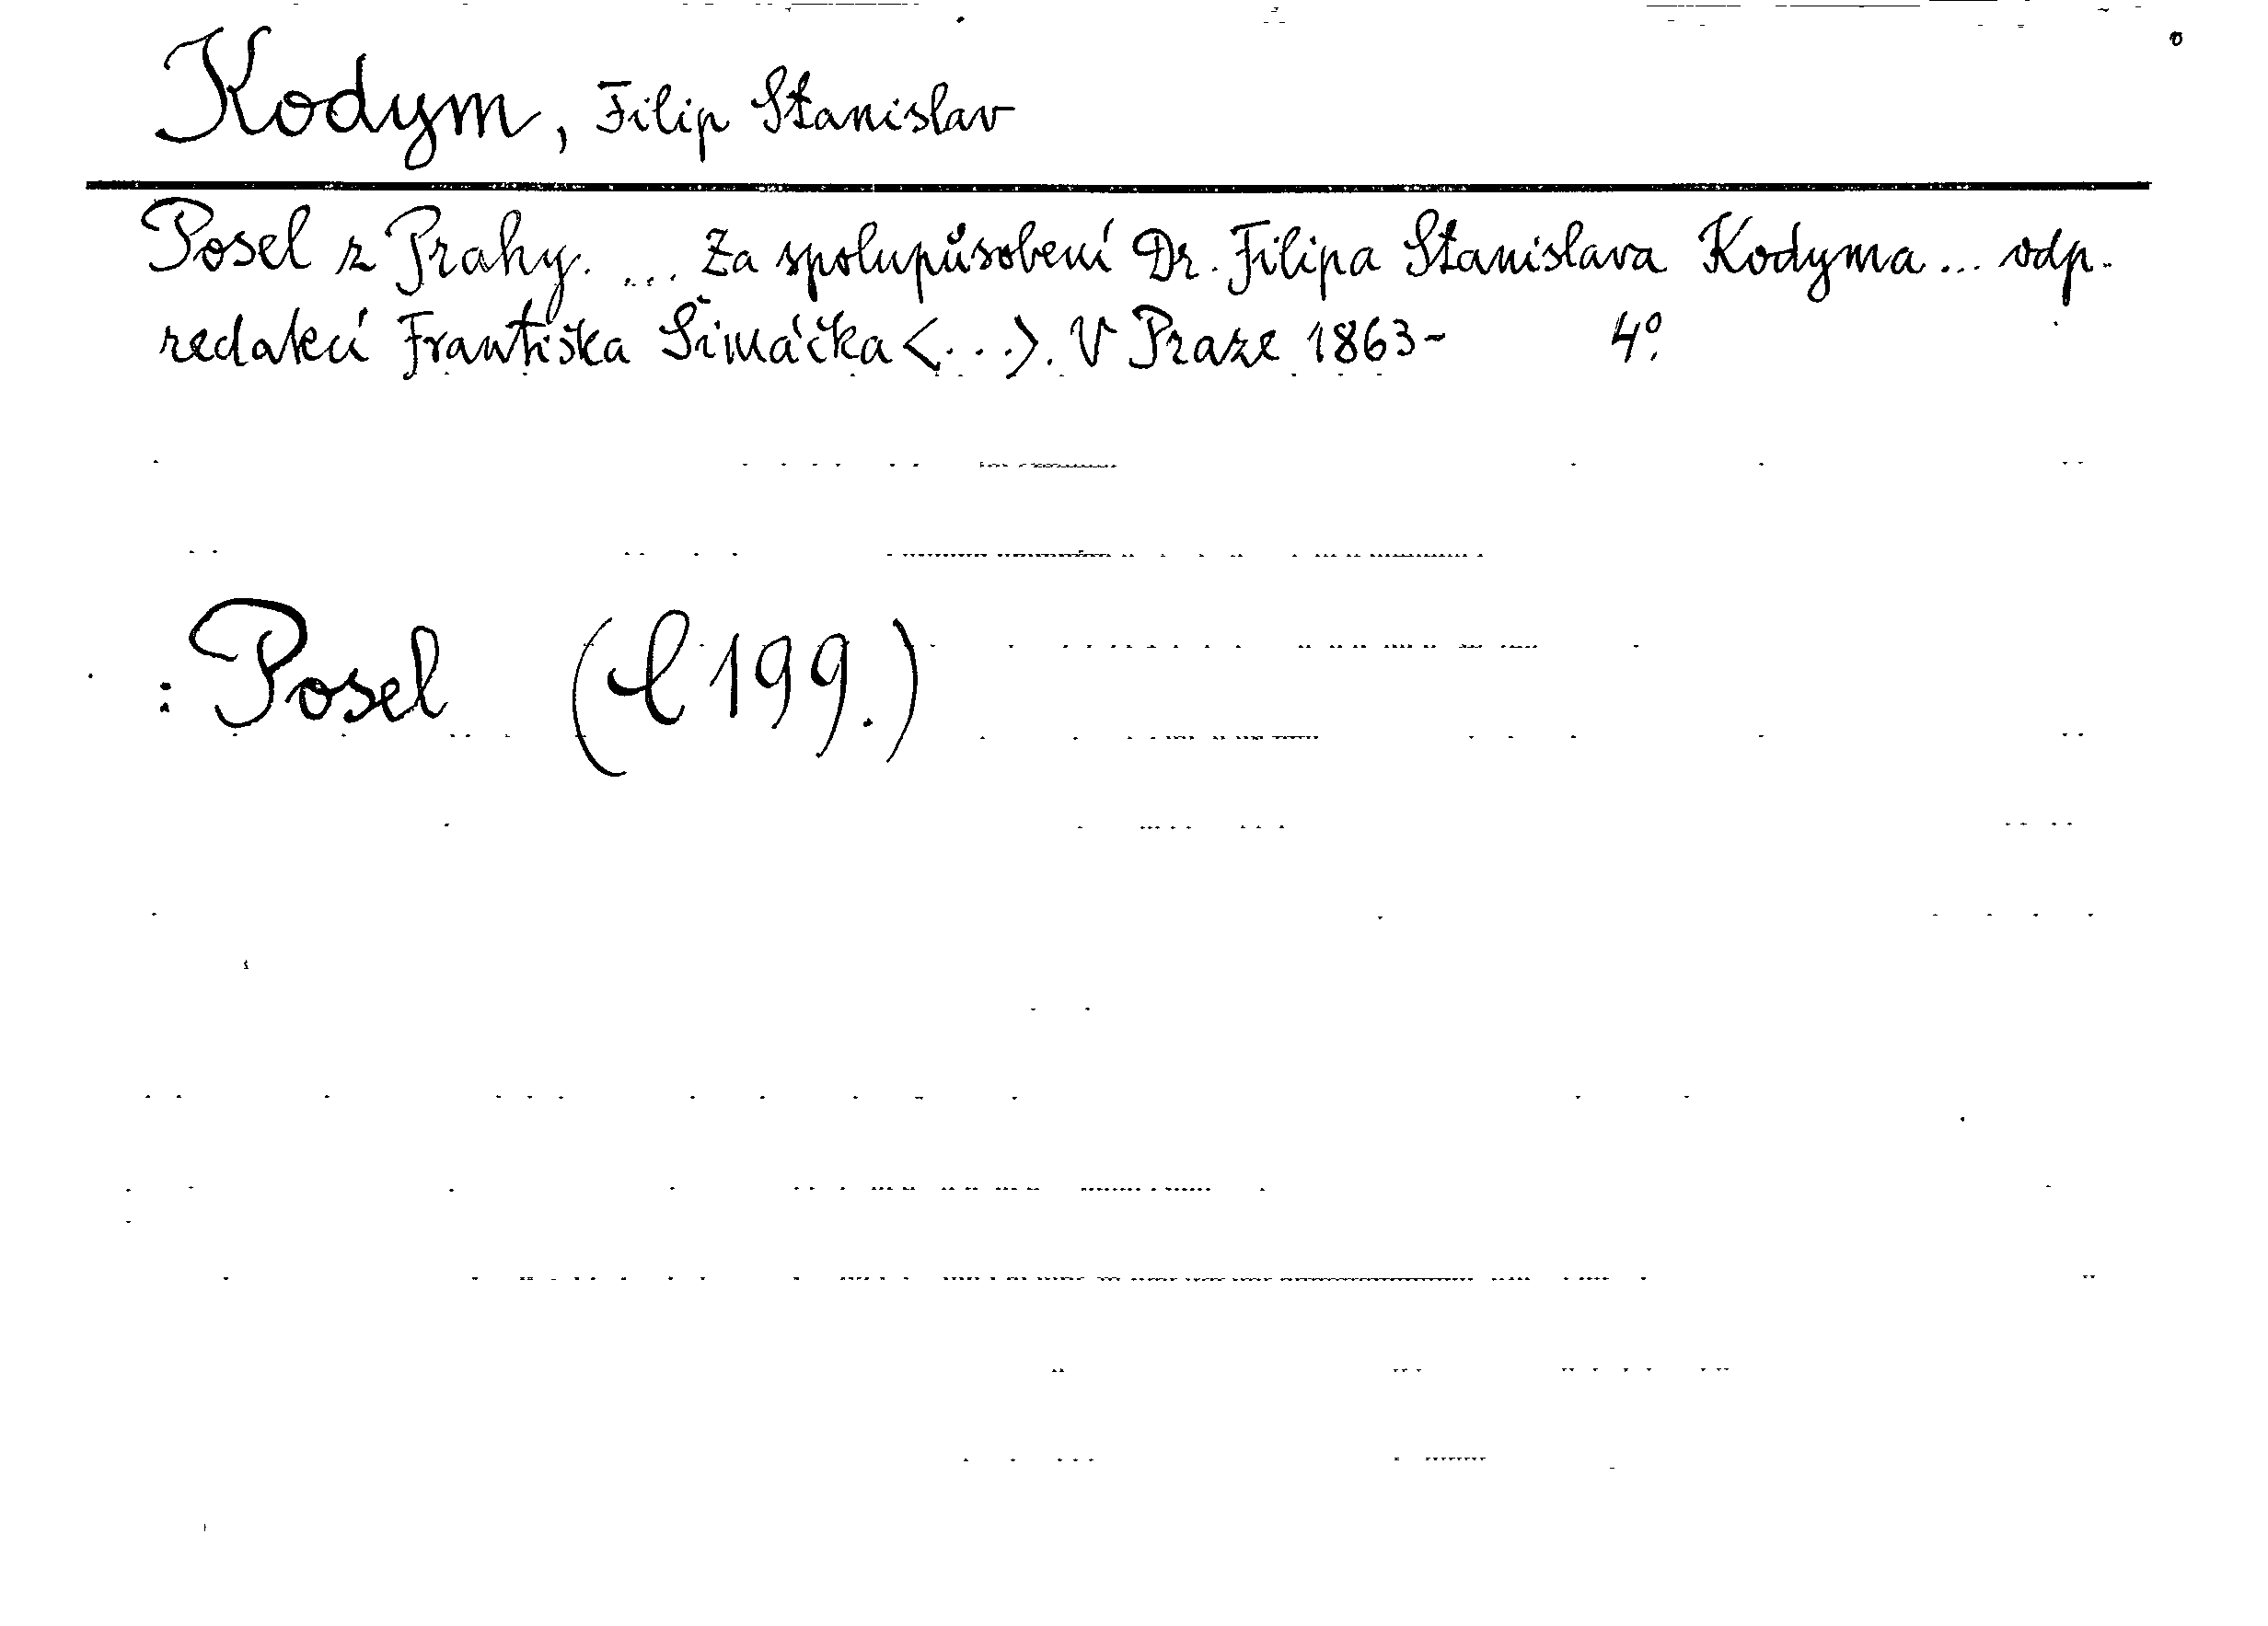 Kodym, Filip Stanislav
Posel z Prahy. ... Za spolupůsobení Dr. Filipa Stanislava Kodyma ... odp.
redakcí Františka Šimáčka <...>. V Praze 1863- 4º.
: Posel (l 199.)